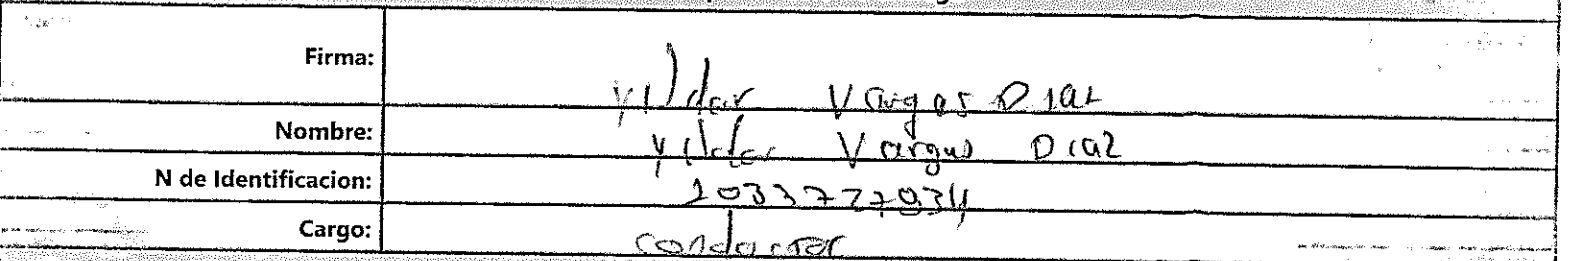 Firma: yildar Vargas Diaz
Nombre: yildar Vargas Diaz
N de Identificacion: 1033727934
Cargo: conductor